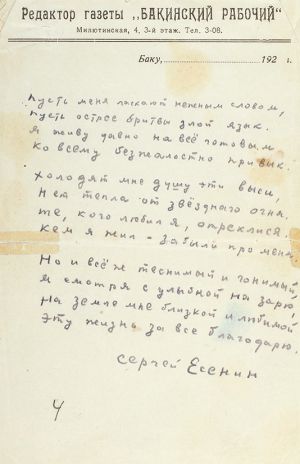 Редактор газеты „БАКИНСКИЙ РАБОЧИЙ“
Милютинская, 4, 3-й этаж. Тел. 3-08.
Баку, 192 г.
Пусть меня ласкают нежным словом,
Пусть острее бритвы злой язык.
Я живу давно на всё готовым
Ко всему безжалостно привык.
Холодят мне душу эти выси,
Нет тепла от звёздного огня.
Те, кого любил я, отреклися.
Кем я жил - забыли про меня
Но и всё ж теснимый и гонимый
Я смотря с улыбкой на зарю,
На земле мне близкой и любимой
Эту жизнь за все благодарю.
Сергей Есенин
4